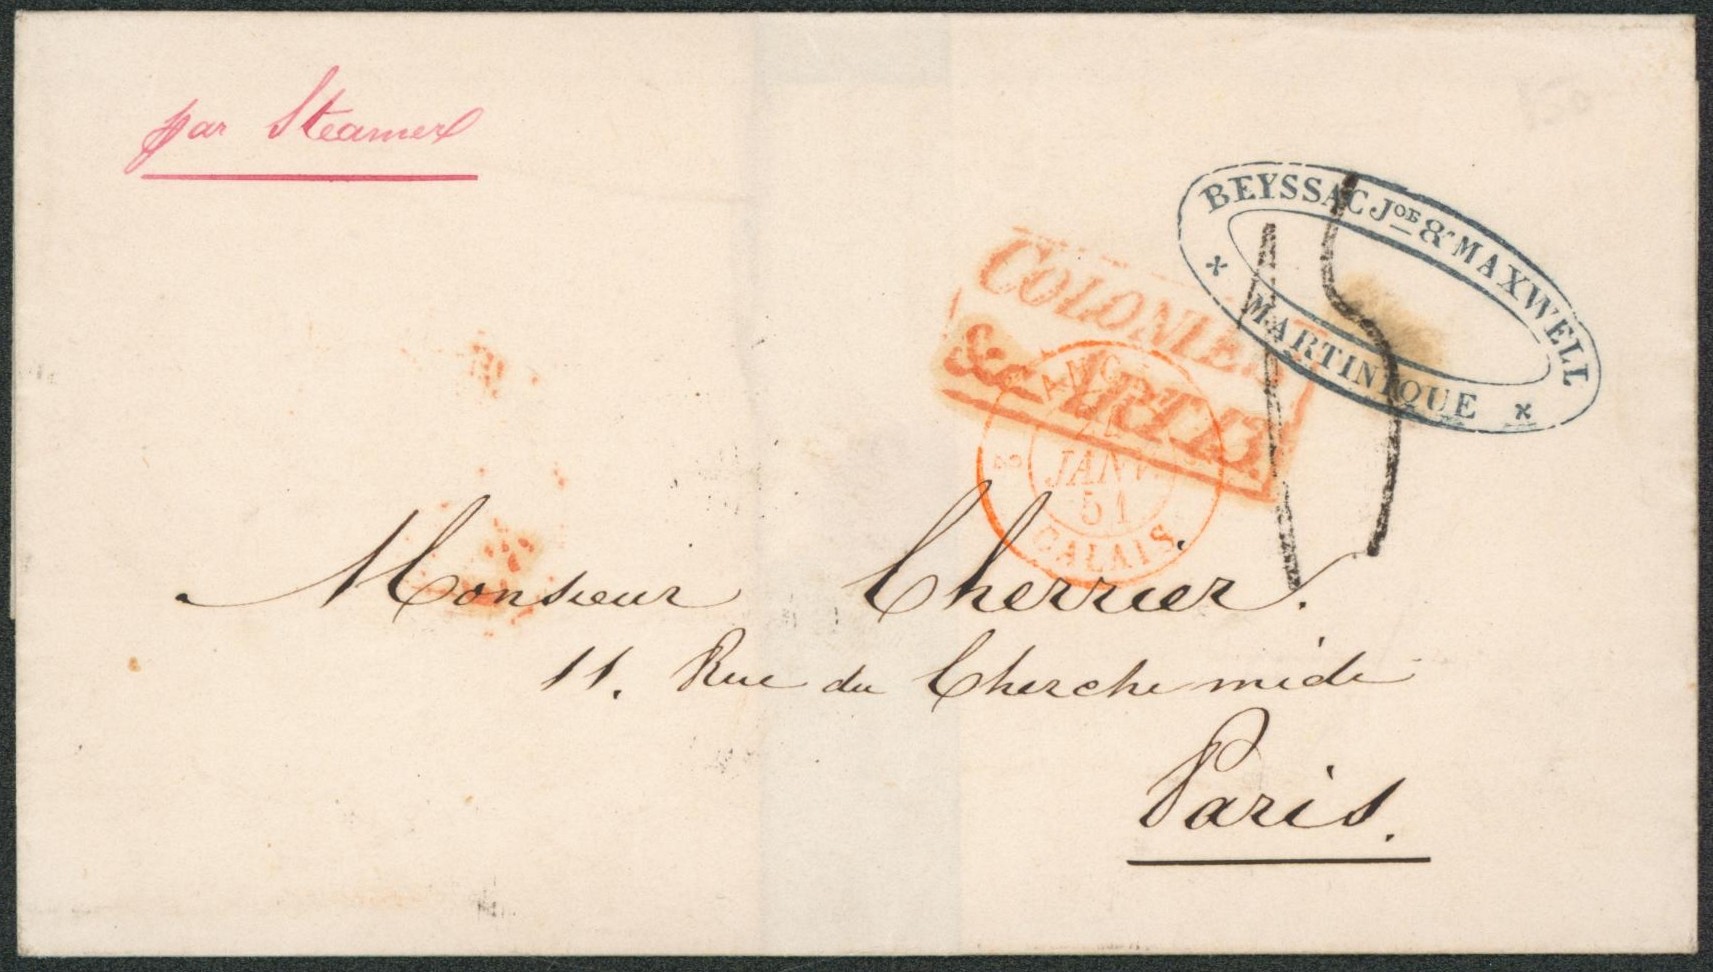 par Steamer
BEYSSAC Joe & MAXWELL
MARTINIQUE
COLONIES
&c. ART 13.
15
ANGL.
JANV.
51
CALAIS
Monsieur Cherrier.
11. Rue du Cherche midi
Paris.